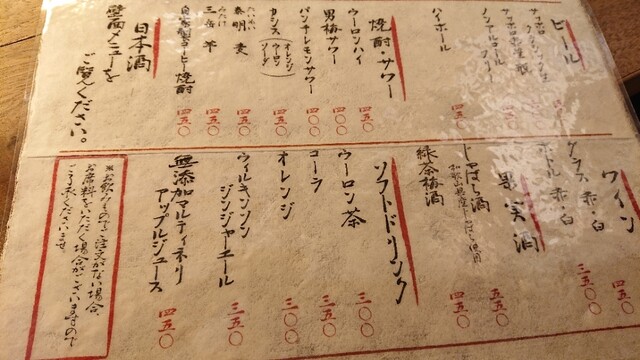 ビール
ハイボール 四五〇
焼酎・サワー
ウーロンハイ 四五〇
男梅サワー 四五〇
パンチレモンサワー 四〇〇
カシス（オレンジ ウーロン ソーダ） 四五〇
泰明 麦 四五〇
三岳 芋 四五〇
自家製コーヒー焼酎 四五〇
日本酒
壁面メニューを
ご覧ください。
ワイン
グラス 赤・白 四五〇
ボトル 赤・白 三五〇〇
果実酒
じゃばら酒 五五〇
緑茶梅酒 四五〇
ソフトドリンク
ウーロン茶 三〇〇
コーラ 三五〇
オレンジ 三〇〇
ウィルキンソン
ジンジャーエール 三五〇
無添加マルティネリ
アップルジュース 四五〇
※お飲みものでご注文がない場合、
お席料をいただく場合がございますので
ご了承くださいませ